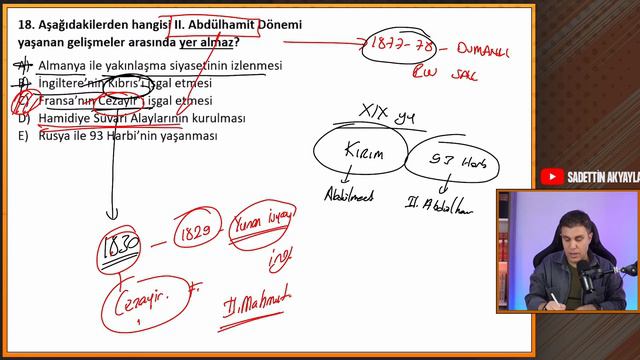 18. Aşağıdakilerden hangisi II. Abdülhamit Dönemi
yaşanan gelişmeler arasında yer almaz?
A) Almanya ile yakınlaşma siyasetinin izlenmesi
B) İngiltere'nin Kıbrıs'ı işgal etmesi
C) Fransa'nın Cezayir'i işgal etmesi
D) Hamidiye Suvari Alaylarının kurulması
E) Rusya ile 93 Harbi'nin yaşanması
1877-78 -
XIX yy
Kırım
93 Harb
II. Abdülham
1830 - 1829 - Yunan isyanı
Cezayir.
II. Mahmut
SADETTİN AKYAYLA